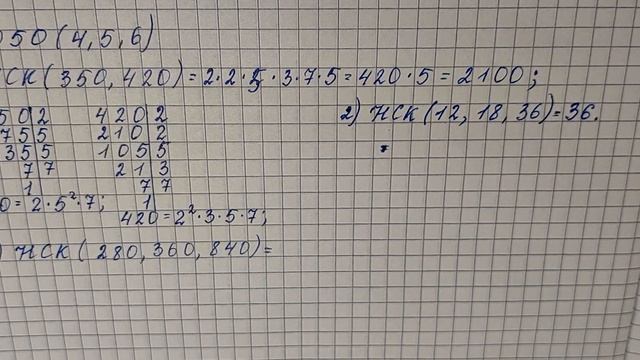 050(4,5,6)
СК(350,420)=2·2·5·3·7·5=420·5=2100;
50 2 420 2 2) НСК(12,18,36)=36.
75 5 210 2
35 5 105 5
7 7 21 3
1 7 7
0=2·5²·7; 1
420=2²·3·5·7;
) НСК(280,360,840)=